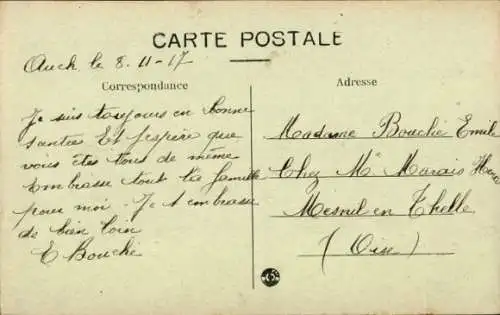 CARTE POSTALE
Auch le 8-11-17
Correspondance
Adresse
Je suis toujours en bonne
santée Et j'espère que
vous êtes tous de même
Embrasse tout ta famille
pour moi. Je t'embrasse
de bien loin
E Bouché
Madame Bouché Emile
Chez Mr Marais
Mesnil en Thelle
(Oise)